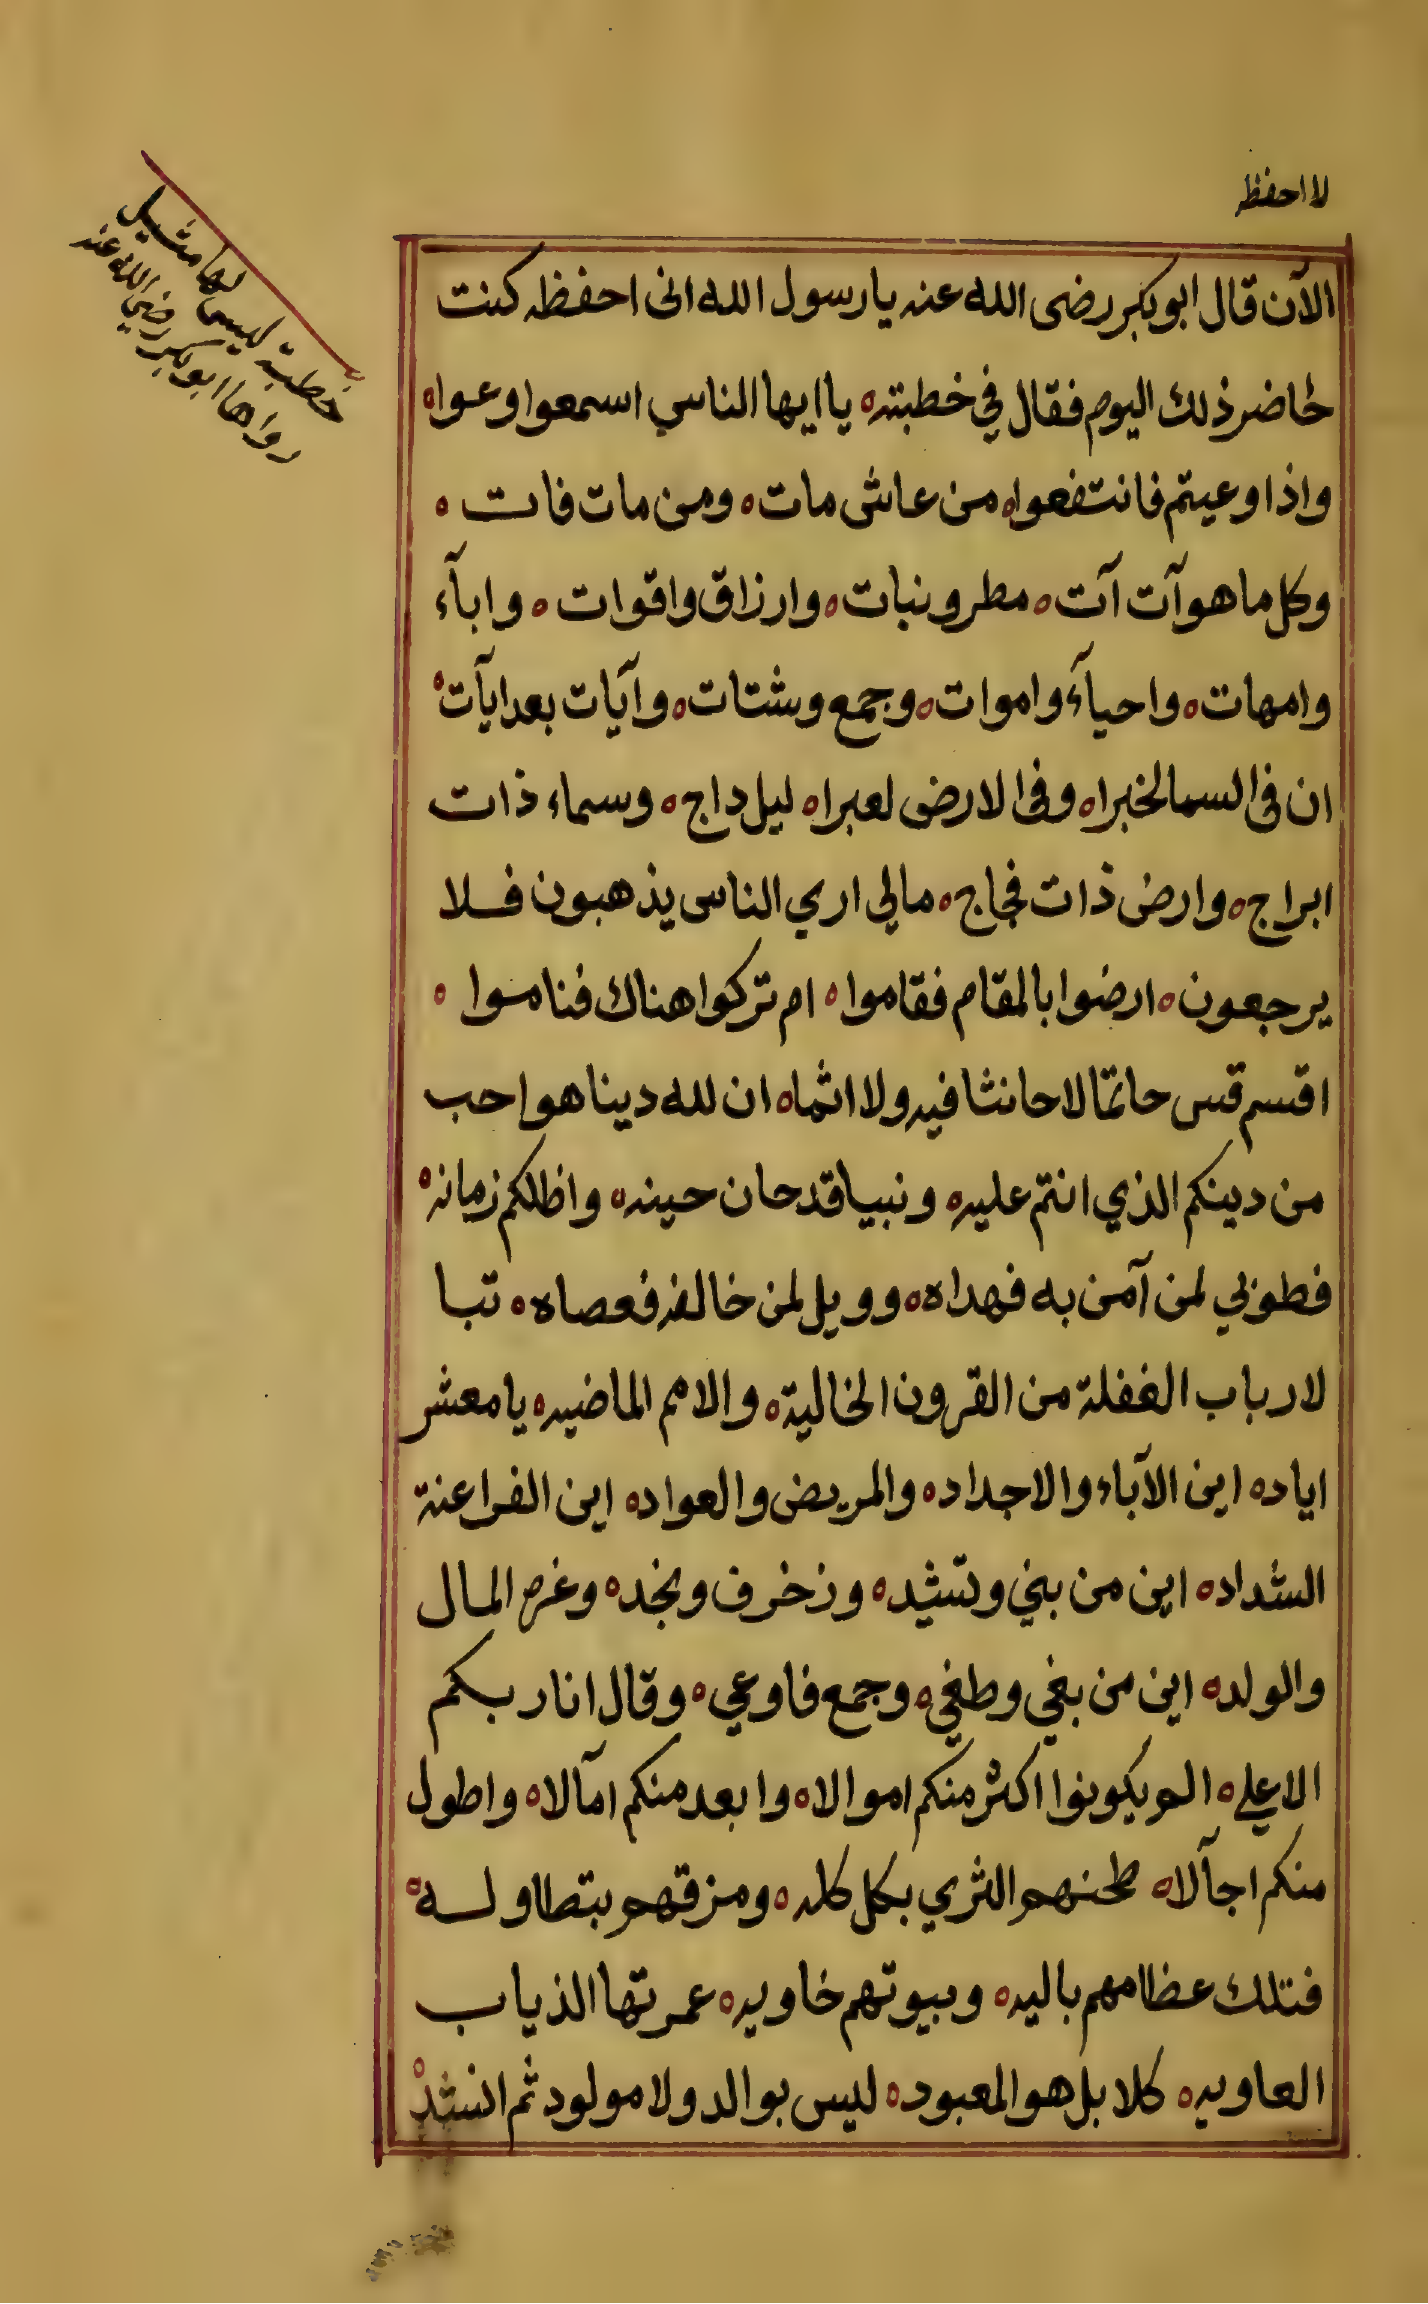 لا احفظه
خطبة ليس لها مثيل
رواها ابو بكر رضي الله عنه
الآن قال ابو بكر رضى الله عنه يا رسول الله انى احفظه كنت
حاضر ذلك اليوم فقال في خطبته ه يا ايها الناس اسمعوا وعوا ه
واذا وعيتم فانتفعوا ه من عاش مات ه ومن مات فات ه
وكل ما هو آت آت ه مطر ونبات ه وارزاق واقوات ه وابآء
وامهات ه واحيآء واموات ه وجمع وشتات ه وآيات بعد ايآت ه
ان فى السما لخبرا ه وفى الارض لعبرا ه ليل داج ه وسماء ذات
ابراج ه وارض ذات فجاج ه مالي اري الناس يذهبون فلا
يرجعون ه ارضوا بالمقام فقاموا ه ام تركوا هناك فناموا ه
اقسم قس حاتما لا حانثا فيه ولا اثما ه ان لله دينا هو احب
من دينكم الذي انتم عليه ه ونبيا قد حان حينه ه واظلكم زمانه ه
فطوبي لمن آمن به فهداه ه وويل لمن خالفه فعصاه ه تبا
لارباب الغفلة من القرون الخالية ه والامم الماضيه ه يا معشر
اياد ه اين الآباء والاجداد ه والمريض والعواد ه اين الفراعنة
الشداد ه اين من بني وشيد ه وزخرف ونجد ه وغره المال
والولد ه اين من بغي وطغي ه وجمع فاوعي ه وقال انا ربكم
الاعلي ه الم يكونوا اكثر منكم اموالا ه وابعد منكم امآلا ه واطول
منكم اجآلا ه طحنهم الثري بكلكله ه ومزقهم بتطاوله ه
فتلك عظامهم باليه ه وبيوتهم خاويه ه عمرتها الذياب
العاويه ه كلا بل هو المعبود ه ليس بوالد ولا مولود ثم انشد ه